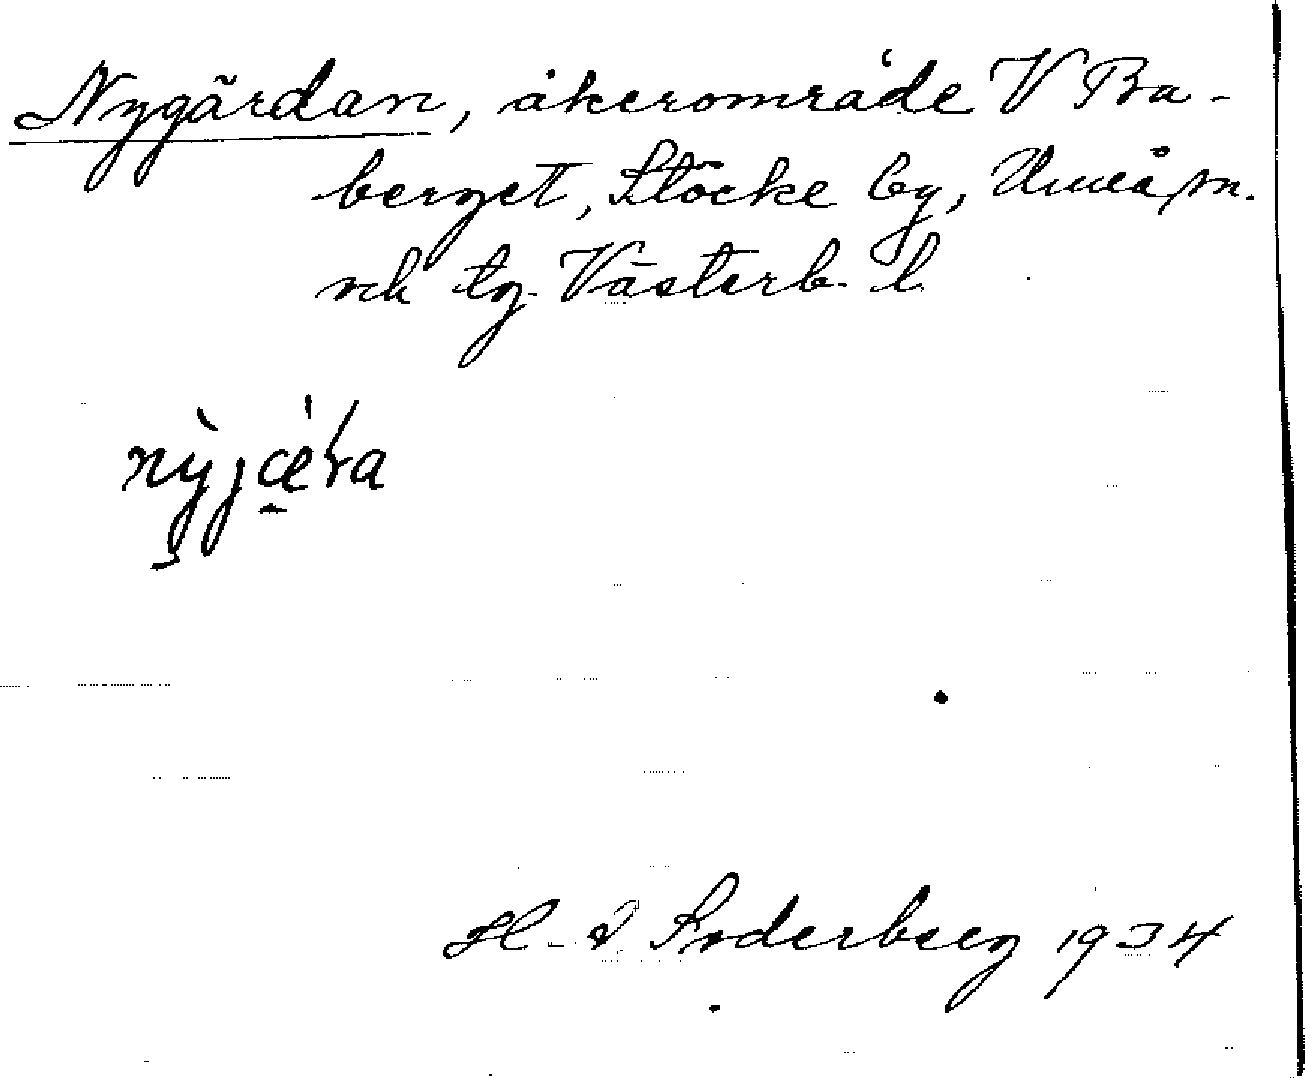 Nygärdan, åkerområde V Bra-
berget, Stöcke by, Umeå sn.
och tg. Västerb. l
nỳjæ̀ra
H. Söderberg 1934